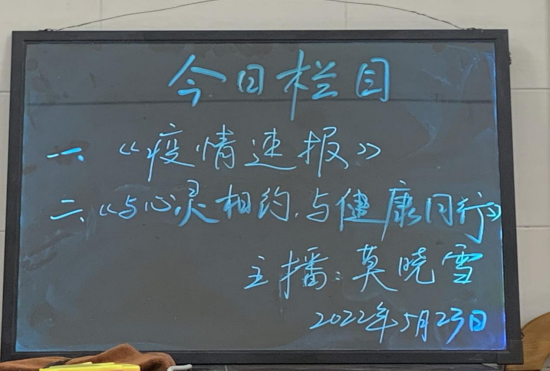 今日栏目
一、《疫情速报》
二、《与心灵相约,与健康同行》
主播:莫晓雪
2022年5月23日